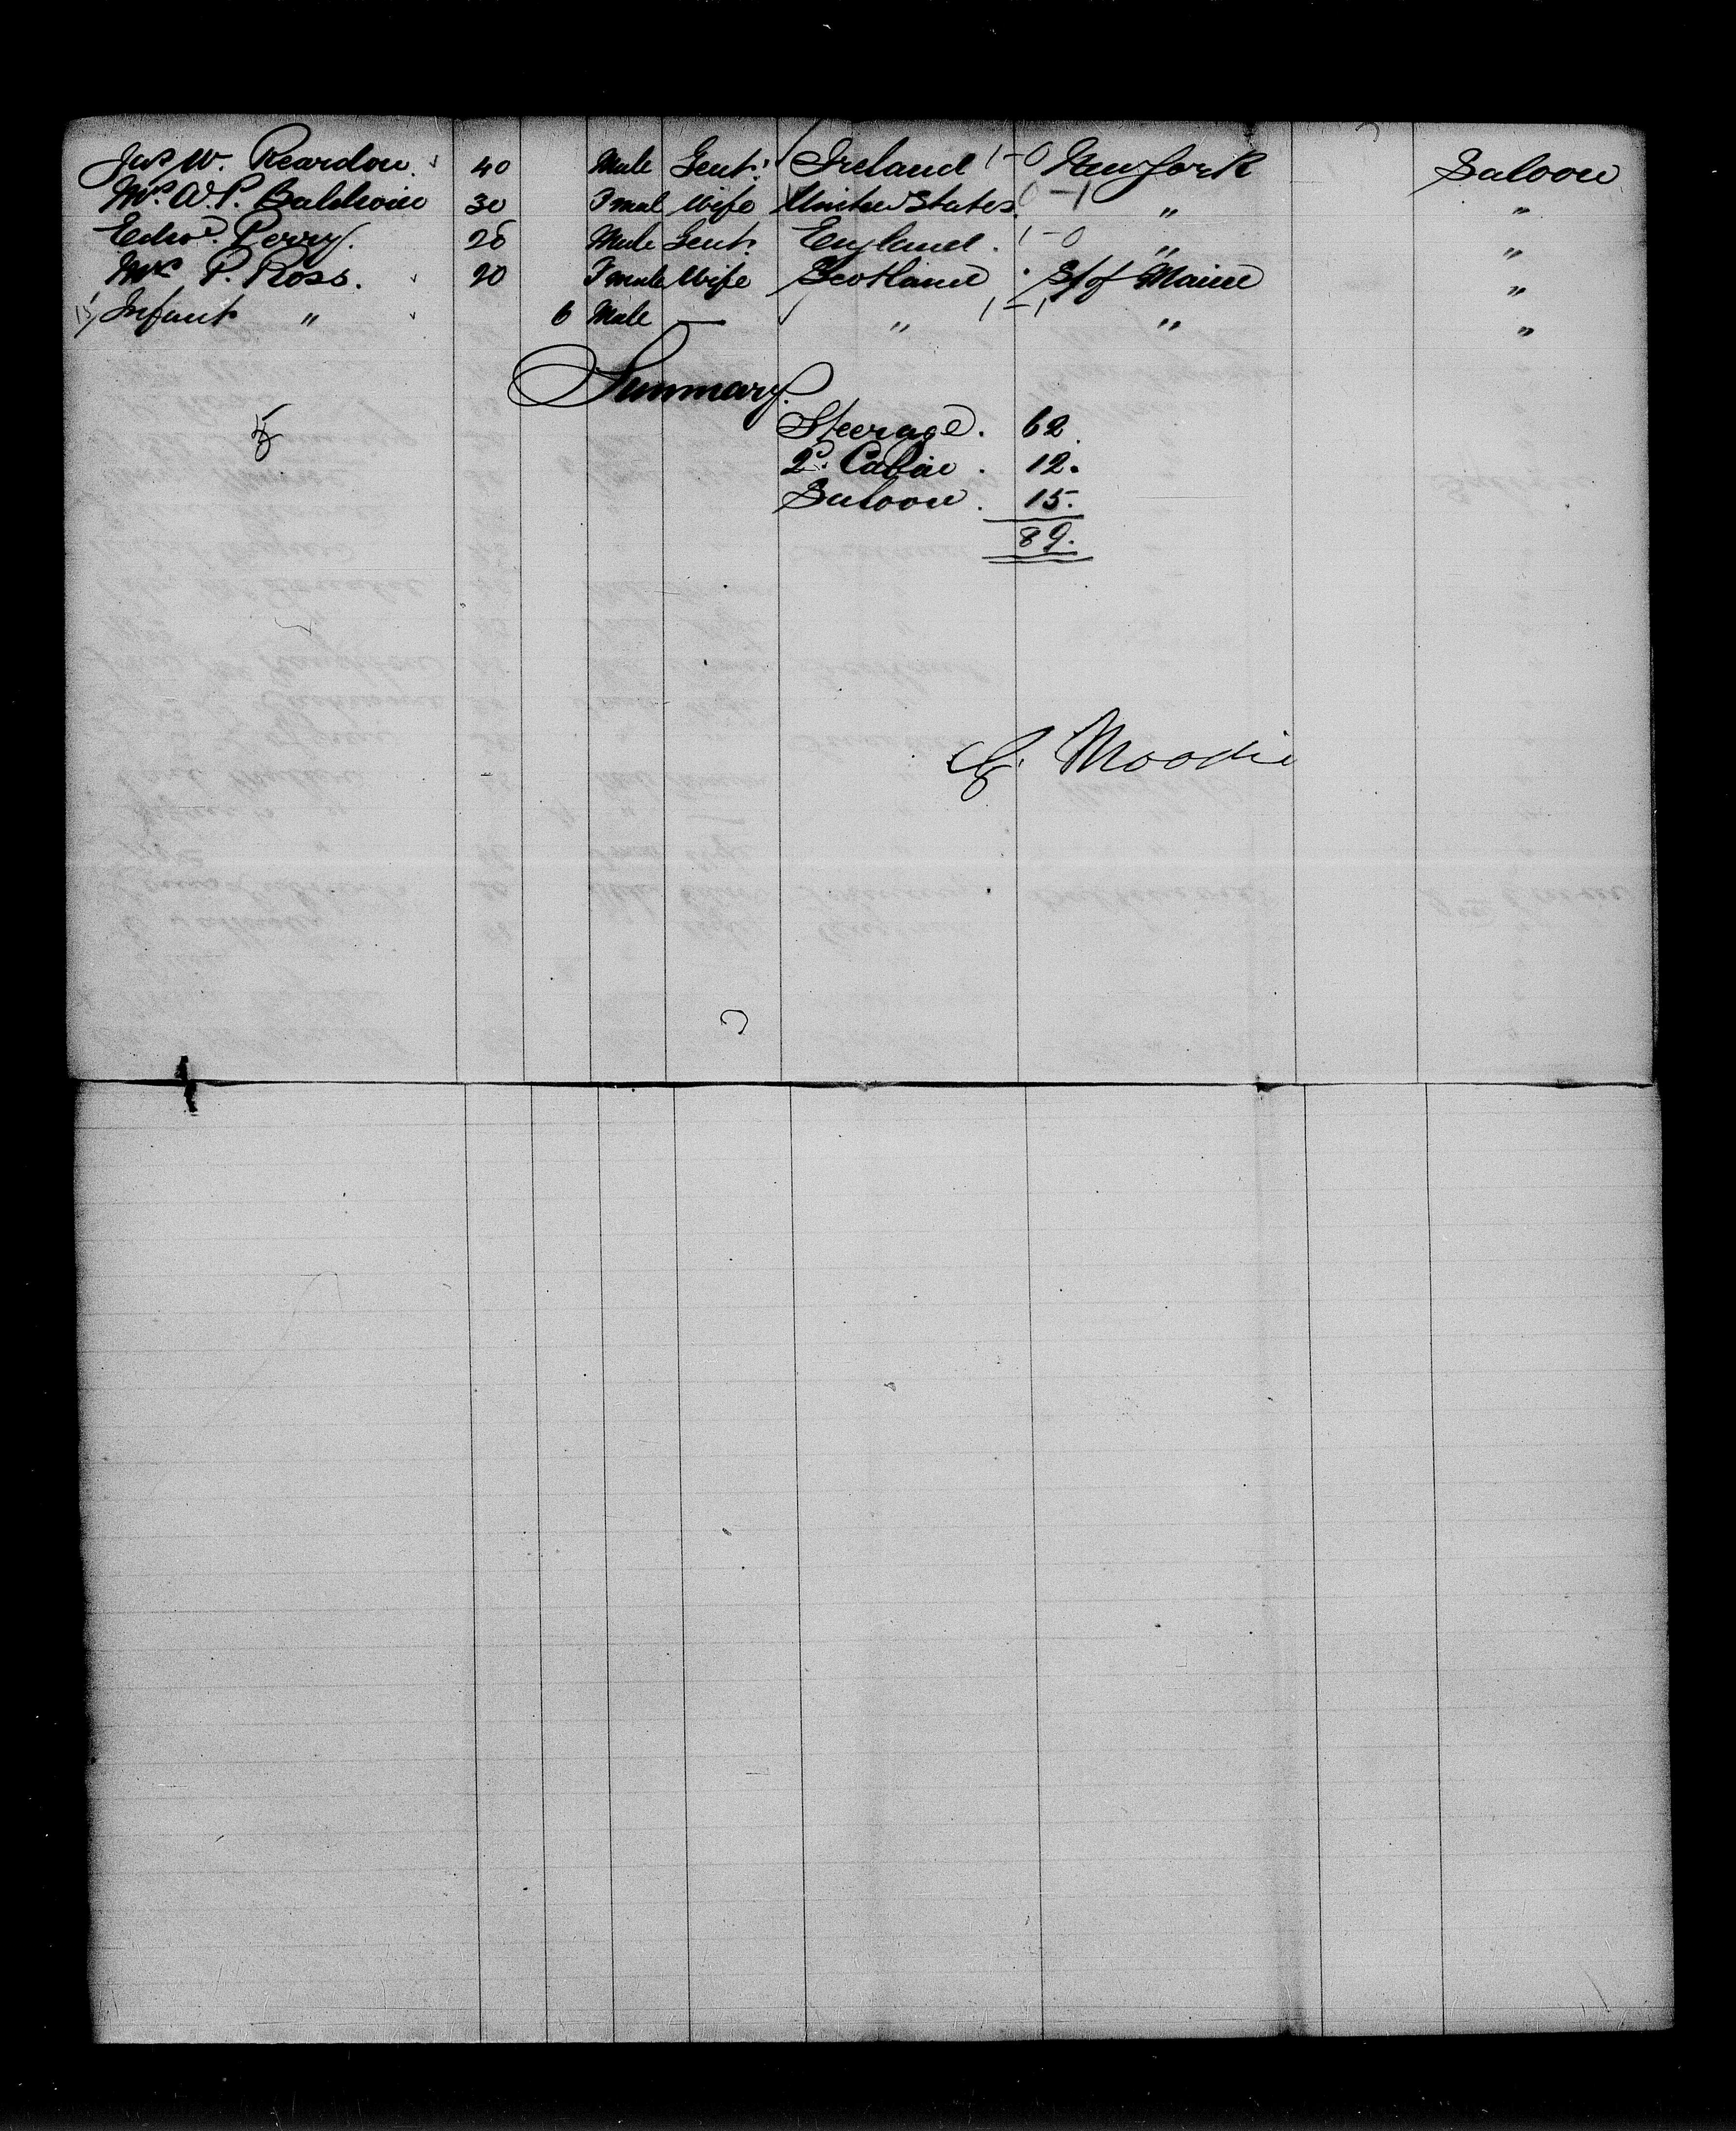 Jas W. Reardon. 40 Male Gent. Ireland 1-0 New York Saloon
Mrs. W. P. Baldwin 30 Fmal Wife United States. 0-1 " "
Edwd. Perry. 26 Male Gent. England. 1-0 " "
Mrs P. Ross. 20 Fmale Wife Scotland St of Maine "
Infant " 6 Male — " 1-1 " "
Summary.
Steerage. 62.
2d. Cabin. 12.
5 Saloon. 15.
89.
Moodie